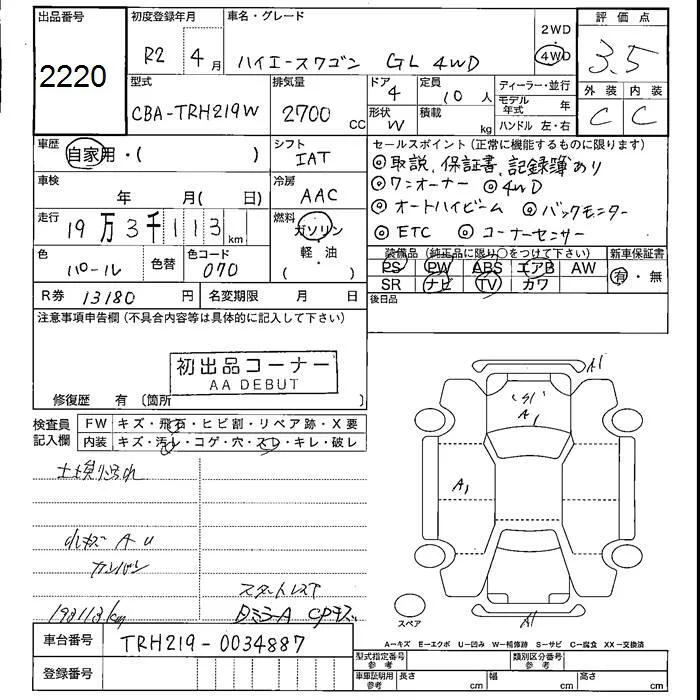 出品番号
2220
初度登録年月
R2年 4月
車名・グレード
ハイエースワゴン GL 4WD
2WD
4WD
評価点
3.5
外装 内装
C C
型式
CBA-TRH219W
排気量
2700 CC
ドア
4
形状
W
定員
10人
積載
kg
ディーラー・並行
モデル年式 年
ハンドル 左・右
車歴
自家用・( )
シフト
IAT
車検
年 月( 日)
冷房
AAC
走行
19万3千113 km
燃料
ガソリン
軽・油
( )
色
パール
色替
色コード
070
R券 13180 円
名変期限 月 日
セールスポイント(正常に機能するものに限ります)
◎取説、保証書、記録簿あり
◎ワンオーナー ◎4WD
◎オートハイビーム ◎バックモニター
◎ETC ◎コーナーセンサー
装備品(純正品に限り○をつけて下さい)
PS PW ABS エアB AW
SR ナビ TV カワ
新車保証書
有・無
後日品
注意事項申告欄(不具合内容等は具体的に記入して下さい)
初出品コーナー
AA DEBUT
修復歴 有 〔箇所
検査員記入欄
FW キズ・飛石・ヒビ割・リペア跡・X要
内装 キズ・汚レ・コゲ・穴・スレ・キレ・破レ
A U
カンバン
193113km
A1
A1
A1
A1
スペア
A-キズ E-エクボ U-凹み W-補修跡 S-サビ C-腐食 XX-交換済
車台番号 TRH219-0034887
登録番号
型式指定番号 参考
類別区分番号 参考
車庫証明用 参考
長さ cm
幅 cm
高さ cm